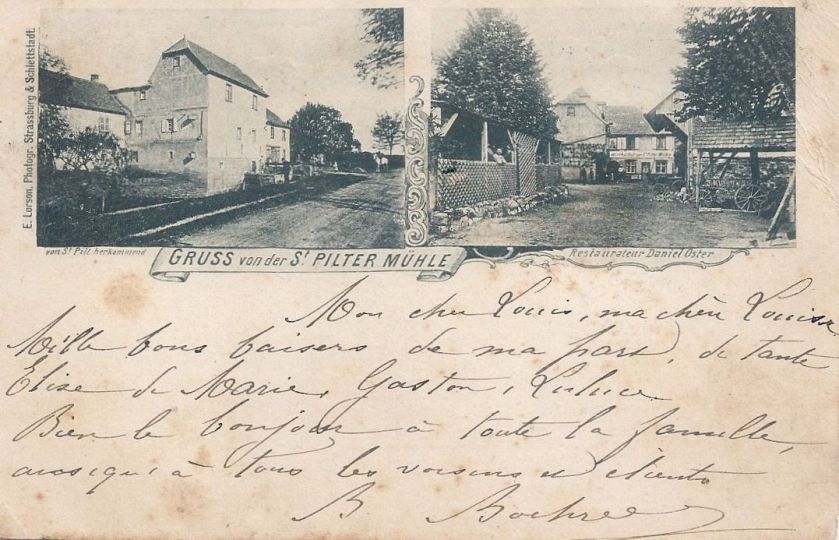 E. Lorson, Photogr. Strassburg & Schlettstadt.
von St Pilt herkommend
GRUSS von der St. PILTER MÜHLE
Restaurateur Daniel Oster
Mon cher Louis, ma chère Louise
Mille bons baisers de ma part, de tante
Elise de Marie, Gaston, Luluce
Bien le bonjour à toute la famille,
ainsi qu'à tous les voisins et clients
B.